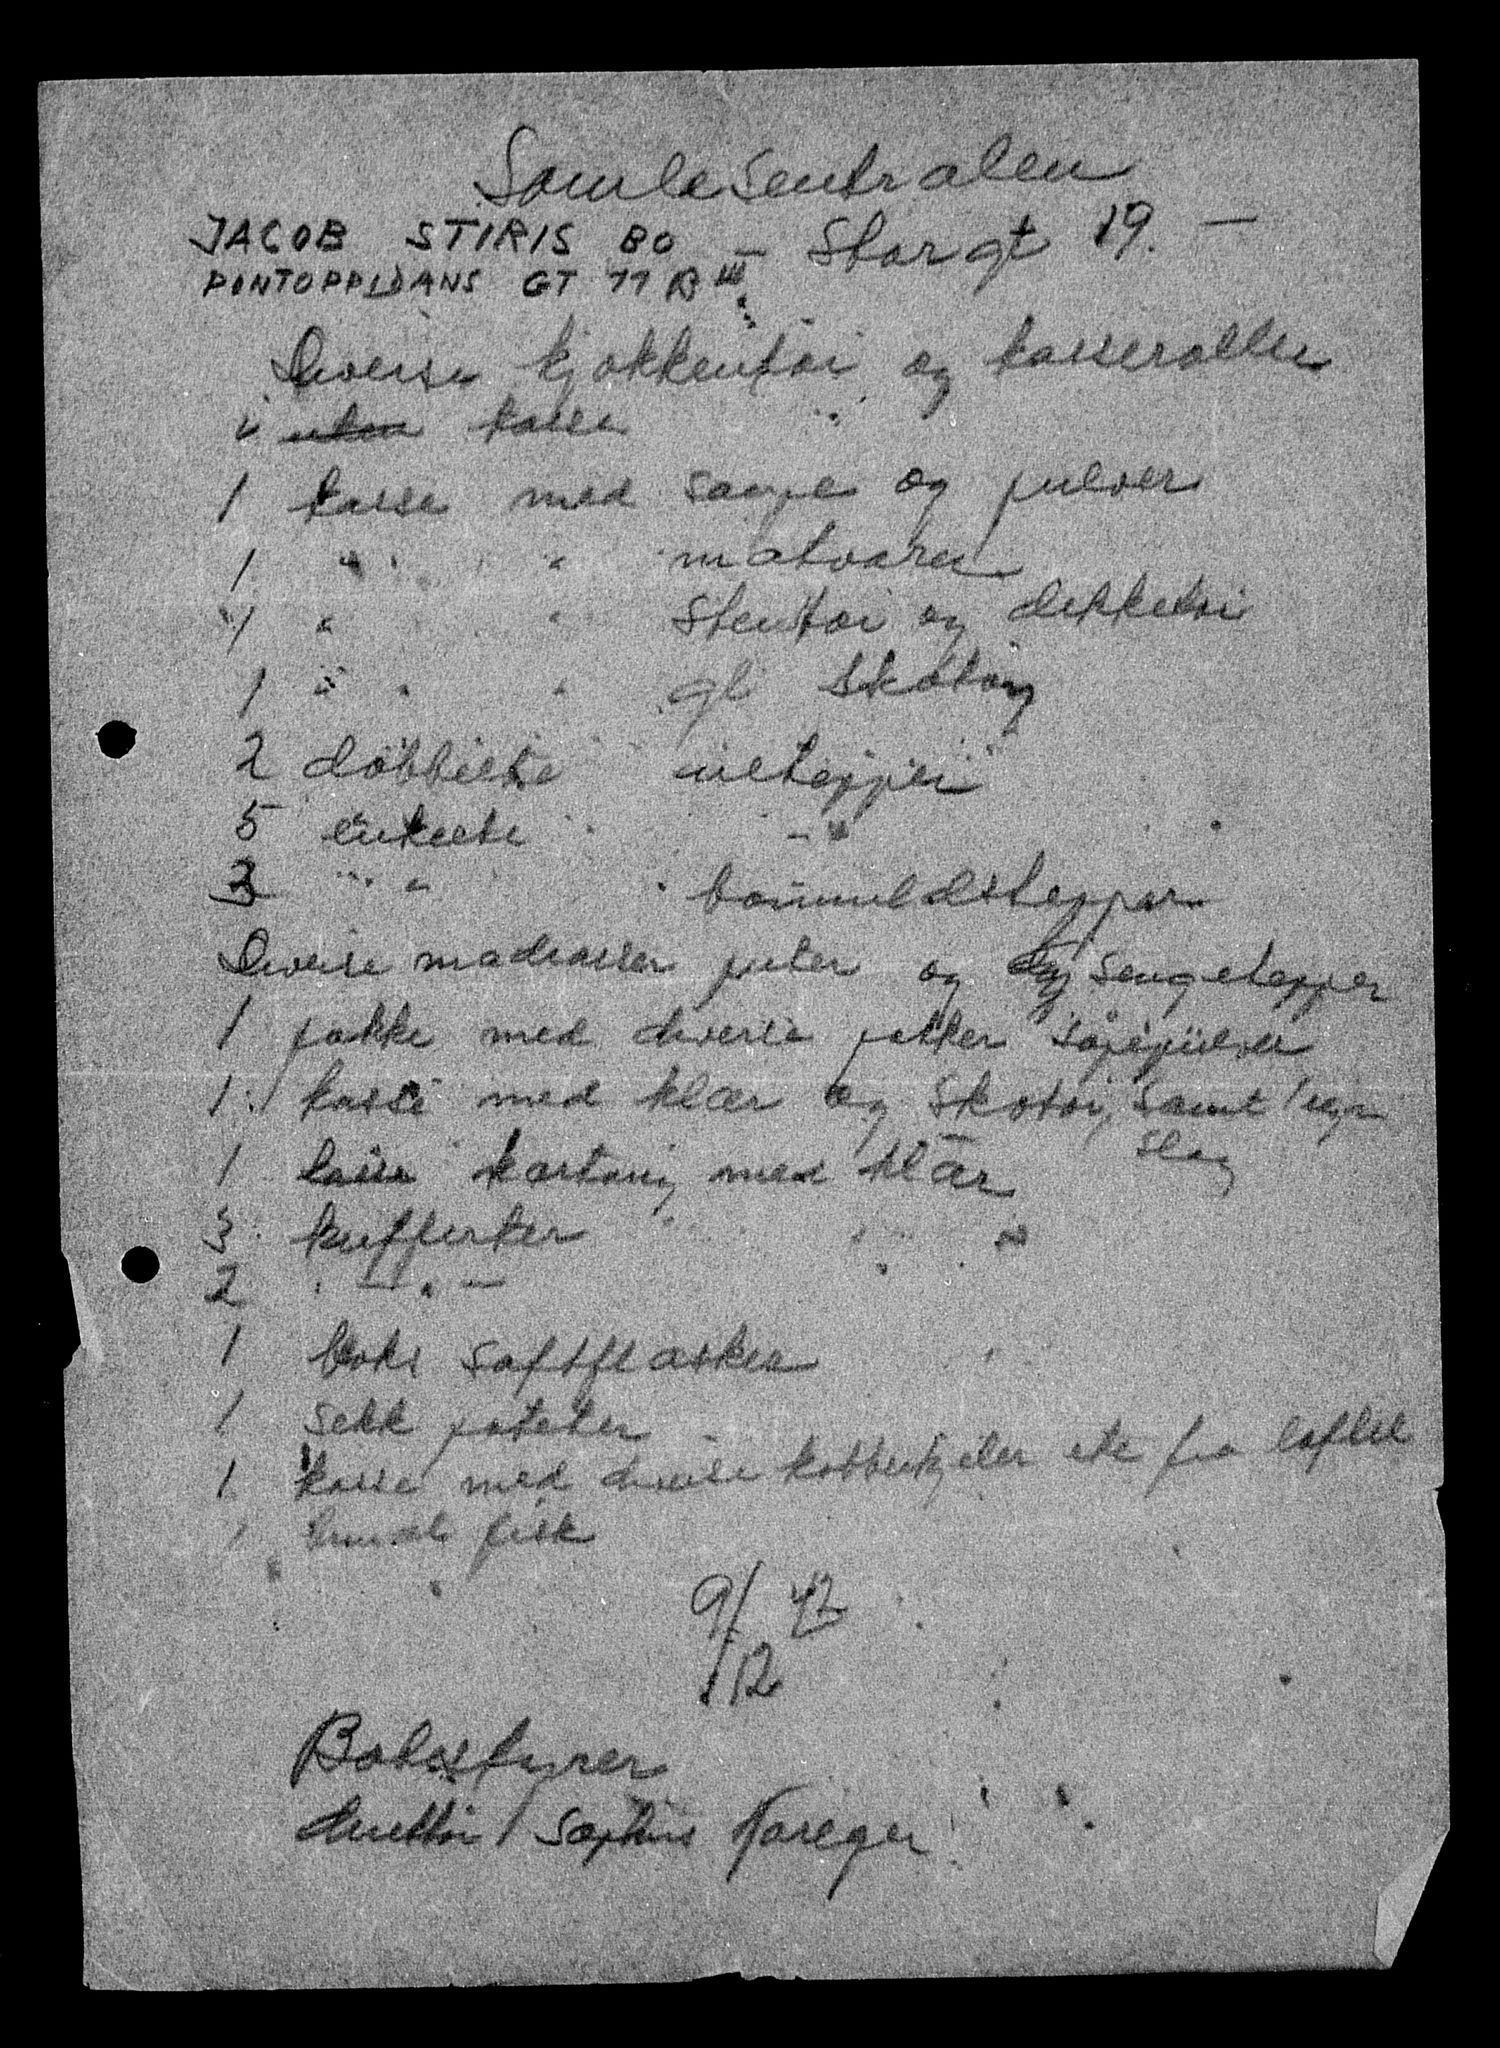 Samlesentralen
JACOB STIRIS BO — Storgt 19. —
PONTOPPIDANS GT 11 B III
Diverse kjøkkentøi og kasseroller
i uten kasse
1 kasse med saape og pulver
1 " " matvarer
4 " " Stentøi og dekketøi
1 " " gl skotøy
2 dobbelte ulltepper
5 enkelte - " -
3 " bomuldstepper
Diverse madrasser puter og sengetepper
1 pakke med diverse pakker såpepulver
1 kasse med klær og Skotøi, samt 1 regn
slag
1 kasse kartong med klær
3 kufferter " "
2 — " —
1 boks saftflasker
1 sekk poteter
1 kasse med diverse kobberkjeler etc fra loftet
1 bundt fisk
9/ 42
12
Bobestyrer
direktør Sophus